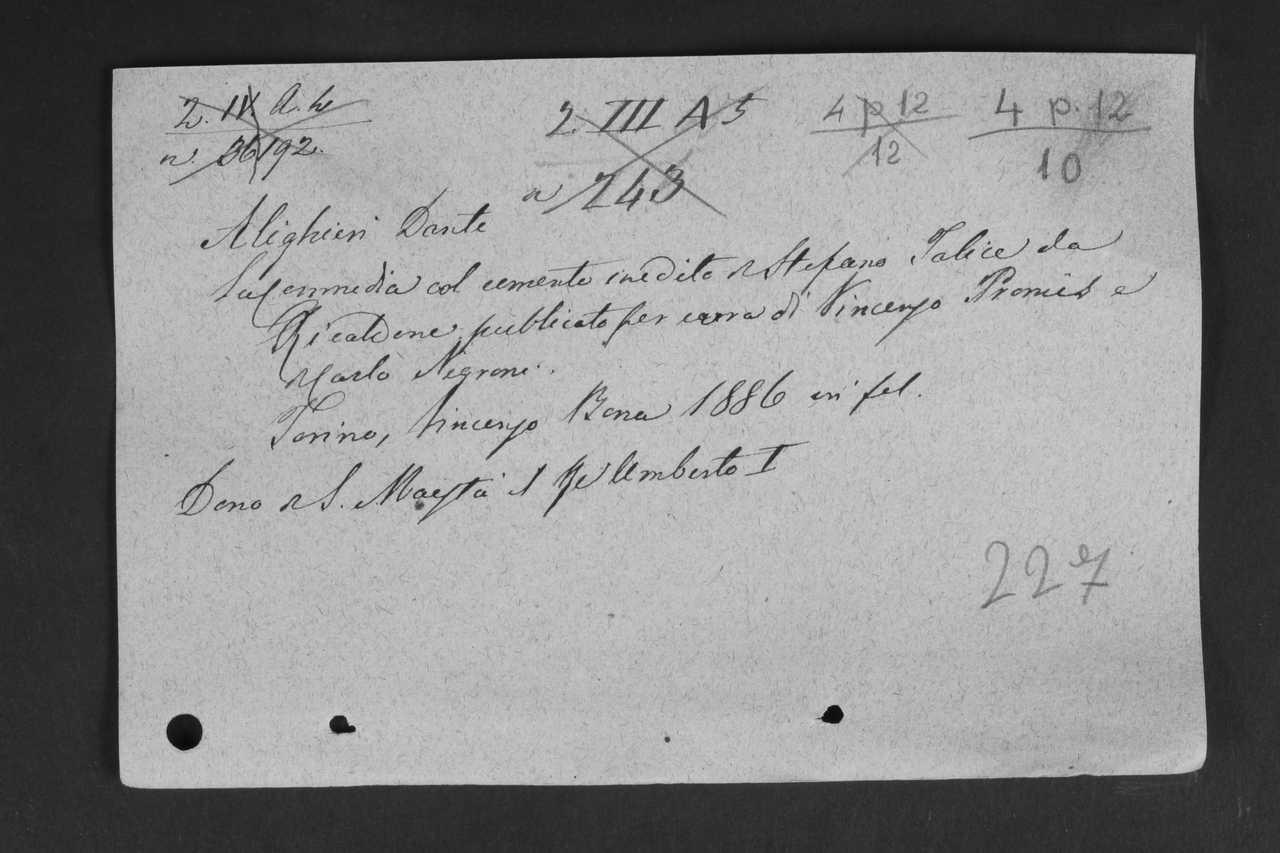 2. III A. 4
n. 36192.
2. III A 5
n 243
4 p 12
12
4 p. 12
10
Alighieri Dante
La Commedia col comento inedito di Stefano Talice da
Ricaldone, pubblicato per cura di Vincenzo Promis e
di Carlo Negroni.
Torino, Vincenzo Bona 1886 in fol.
Dono di S. Maestà il Re Umberto I
227